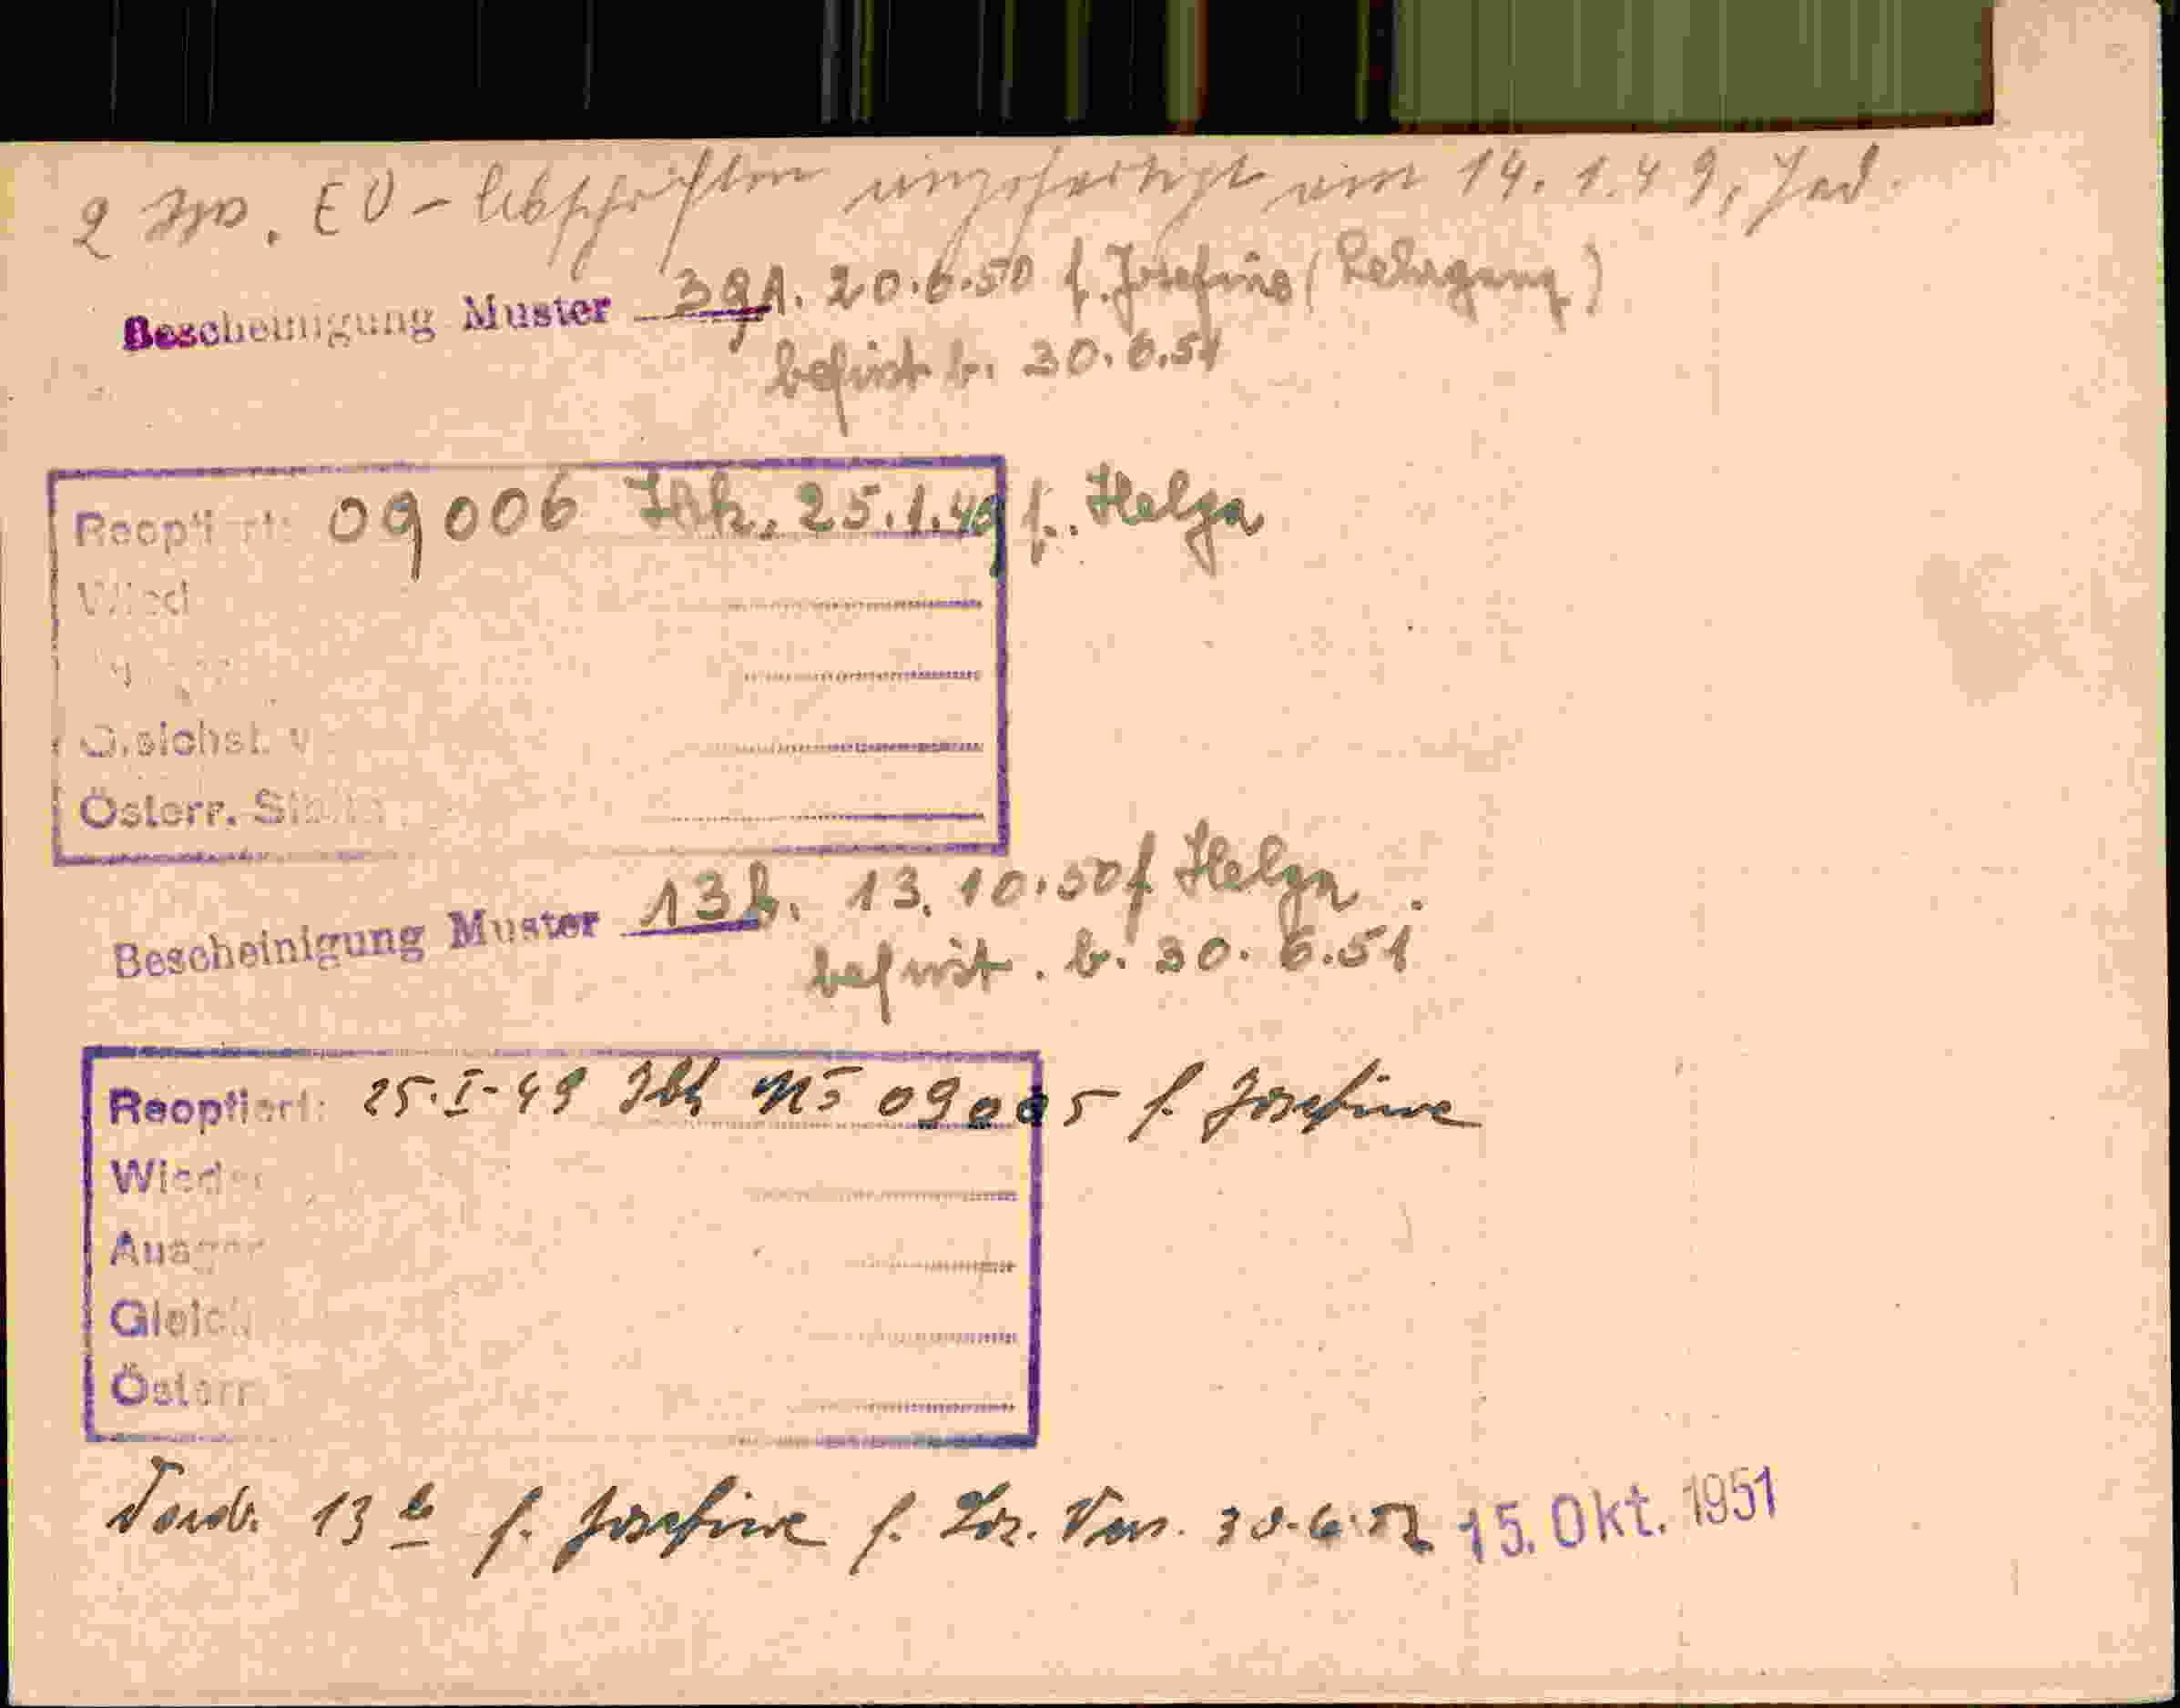 2 EV-Abschriften angefertigt am 14.1.49,
Bescheinigung Muster 39A. 20.6.50 f. Josefine (Lehrgang)
befrist b. 30.6.51
Reoptiert: 09006 Ibk. 25.1.49 f. Helga
Wied
Österr. St
Bescheinigung Muster 13b. 13.10.50 f Helga.
befrist. b. 30.6.51
Reoptiert: 25.I-49 Ibk 09005 f. Josefine
Wieder
Ausger
Gleich
Österr
13 b f. Josefine f. 30.6.52 15. Okt. 1951